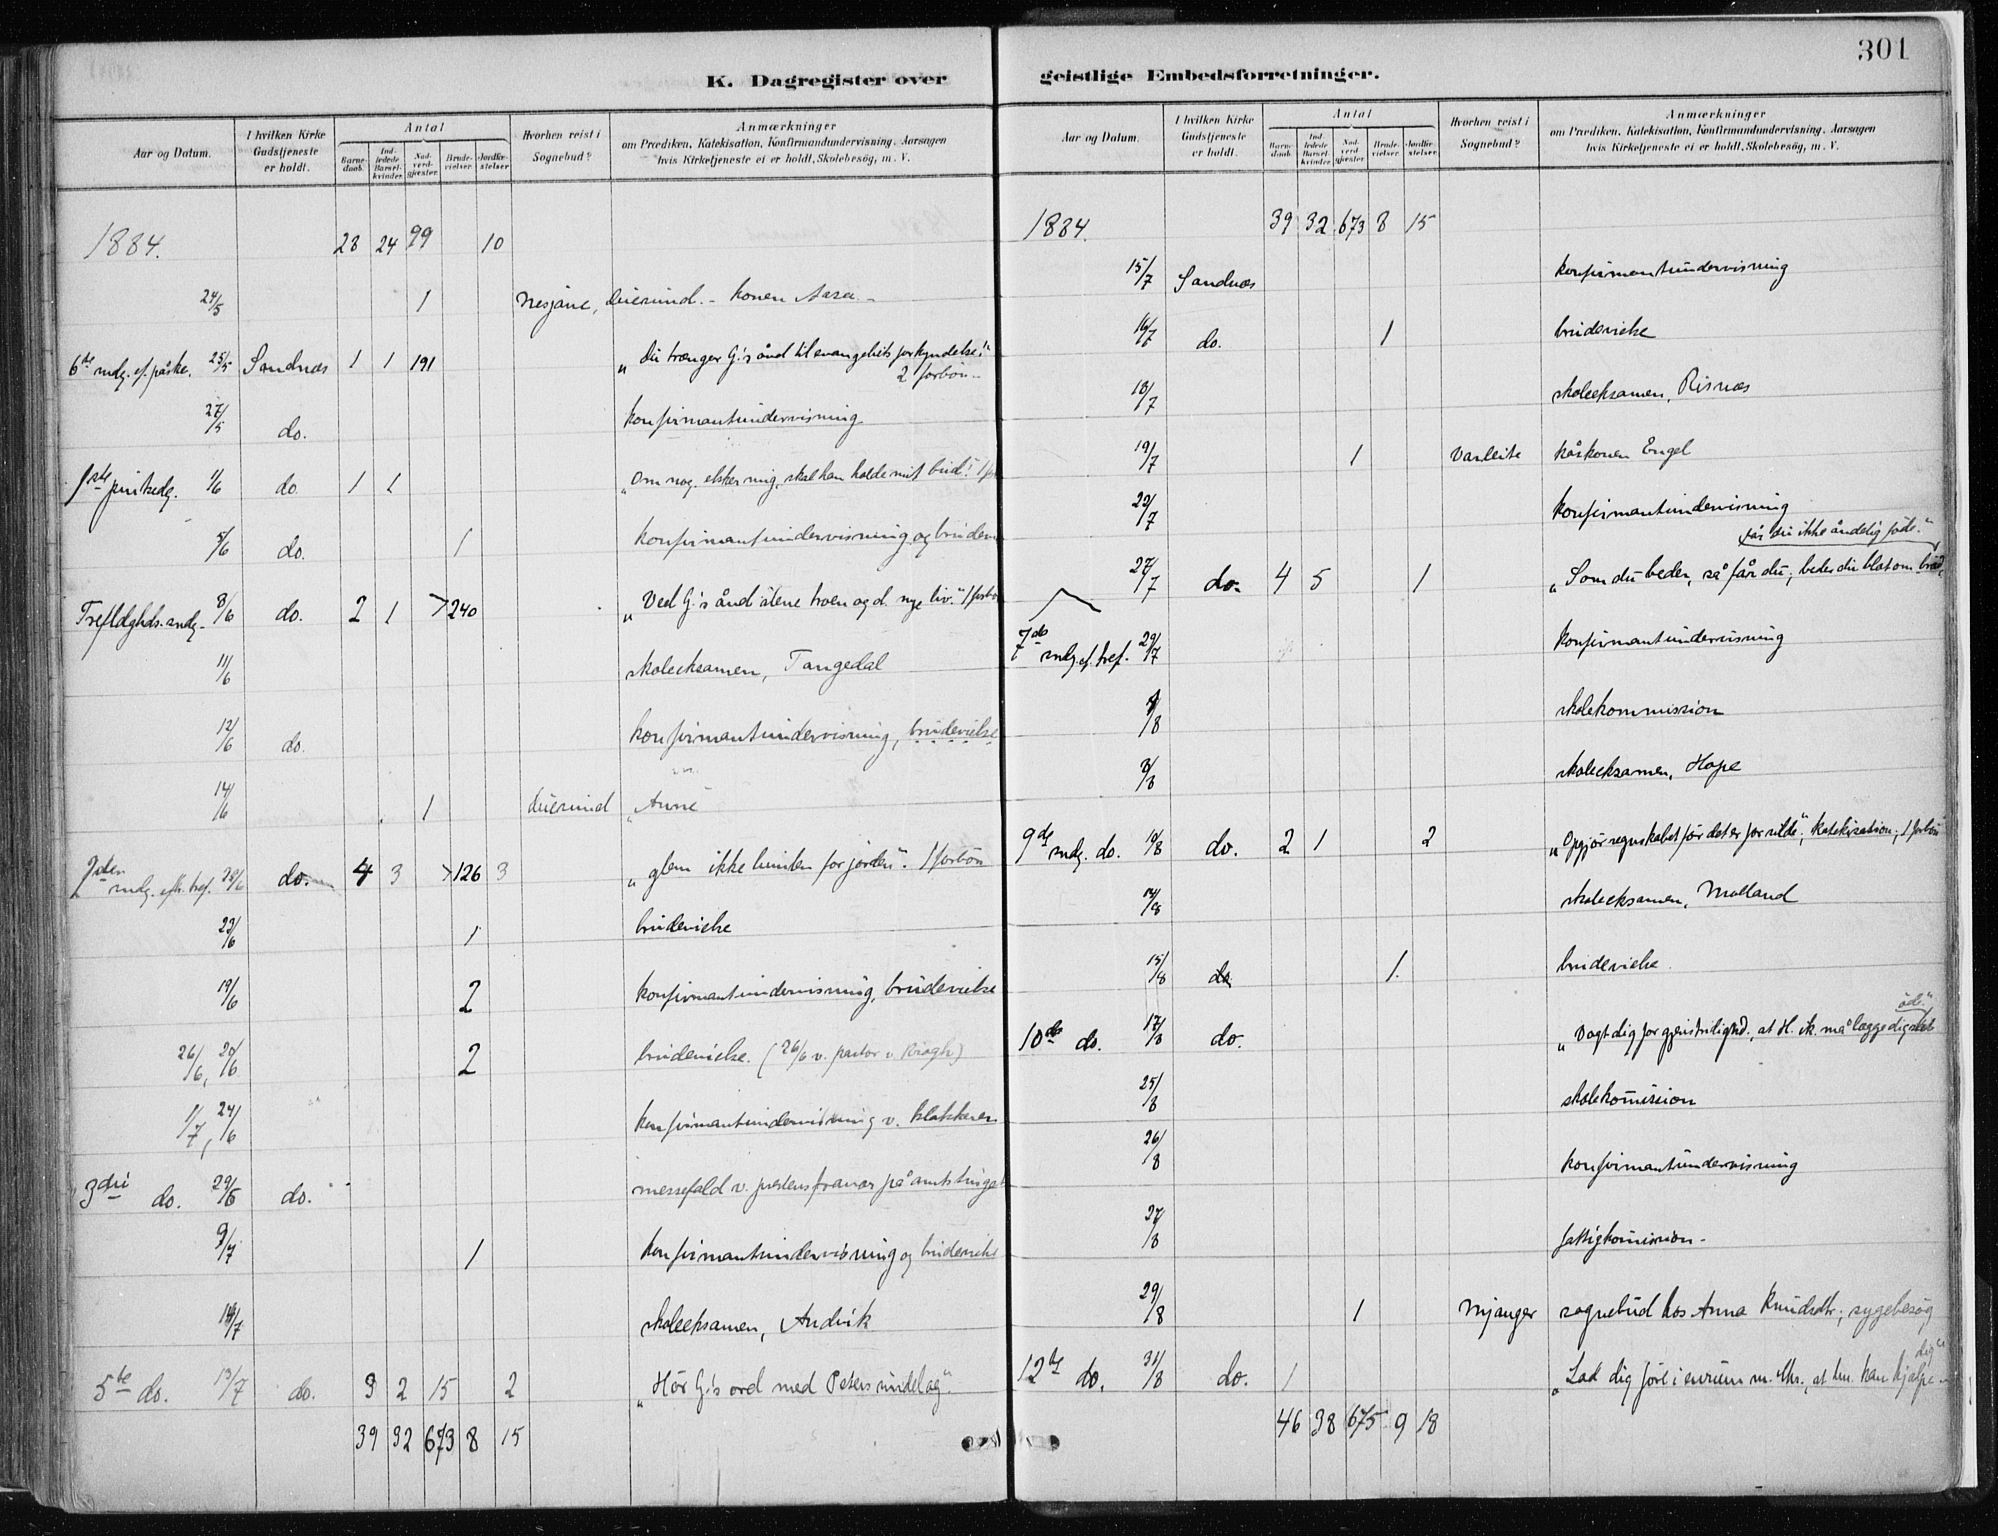 K. Dagregister over geistlige Embedsforretninger.
301
Aar og Datum.
I hvilken Kirke Gudstjeneste er holdt.
Antal
Barnedaab.
Indledede Barselkvinder.
Nadverdgjester.
Brudevielser.
Jordfæstelser.
Hvorhen reist i Sognebud?
Anmærkninger
om Prædiken, Katekisation, Konfirmandundervisning. Aarsagen
hvis Kirketjeneste ei er holdt, Skolebesøg, m. V.
1884. 23 24 99 10
24/5 1 Nesjane, - konen Aasa -
6te sndg. ef. påske. 25/5 Sandnæs 1 1 191 „Du trænger G.'s ånd til evangeliets forkyndelse."
2 forbøn -
27/5 do. konfirmantundervisning
1ste pintsedg. 1/6 do. 1 1 „Om nog. elsker mig, skal han holde mit bud."
5/6 do. 1 konfirmantundervisning og
Trefldghds. sndg. 8/6 do. 2 1 >240 „Ved G.'s ånd alene troen og d. nye liv."
11/6 skoleeksamen, Tangedal
12/6 do. konfirmantundervisning, brudevielse
14/6 1 „Anne
2den sndg. eft. tref. do. 4 3 >126 3 „glem ikke himlen for jorden". 1 forbøn
23/6 1 brudevielse
19/6 2 konfirmantundervisning, brudevielse
26/6, 2 brudevielse. (26/6 v. pastor v.
1/7, 24/6 konfirmantundervisning v. klokkeren
3die do. 29/6 do. messefald v. prestens fravær på amtstinget
9/7 1 konfirmantundervisning og brudevielse
skoleeksamen, Andvik
5te do. 13/7 do. 9 2 15 2 „Hør G.'s ord med Peters sindelag".
39 32 673 8 15
Aar og Datum.
I hvilken Kirke Gudstjeneste er holdt.
Antal
Barnedaab.
Indledede Barselkvinder.
Nadverdgjester.
Brudevielser.
Jordfæstelser.
Hvorhen reist i Sognebud?
Anmærkninger
om Prædiken, Katekisation, Konfirmandundervisning. Aarsagen
hvis Kirketjeneste ei er holdt, Skolebesøg, m. V.
1884. 39 32 673 8 15
15/7 Sandnæs konfirmantundervisning
16/7 do. 1 brudevielse
18/7 skoleeksamen, Risnæs
19/7 1 Varleite kårkonen Engel
22/7 konfirmantundervisning
får du ikke åndelig føde."
27/7 do. 4 5 1 „Som du beder, så får du; beder du blot om brød,
7de sndg. ef. tref. 29/7 konfirmantundervisning
4/8 skolekommission
8/8 skoleeksamen, Hope
9de sndg. do. 10/8 do. 2 1 2 „Opgjør regnskabet før det er for silde"; katekisation; 1 forbøn
14/8 skoleeksamen, Molland
15/8 do 1. brudevielse.
øde."
10de do. 17/8 do. „Vogt dig for gjenstridighd., at H. ik. må lægge dig
25/8 skolekomission
26/8 konfirmantundervisning
27/8 fattigkomission.
29/8 1 Mjanger sognebud hos Anna Knudsdtr.; sygebesøg
dig"
12te do. 31/8 do. 1 „Lad dig føre i enrum m. Chr., at hn. kan hjælpe
46 38 675 9 18